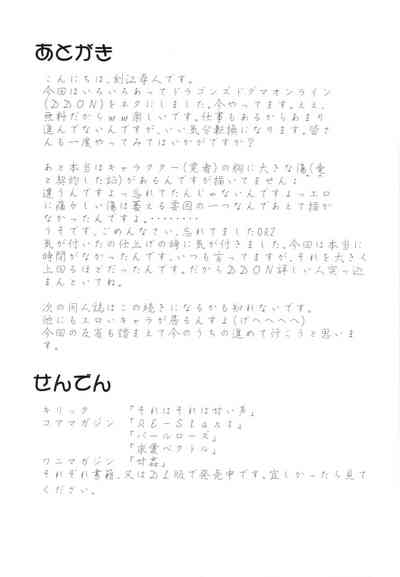 あとがき
こんにちは、剣江尋人です。
今回はいろいろあってドラゴンズドグマオンライン
(DDON)をネタにしました。今やってます。ええ、
無料だからww楽しいです。仕事もあるからあまり
進んでないんですが、いい気分転換になります。皆さ
んも一度やってみてはいかがですか?
あと本当はキャラクター(覚者)の胸に大きな傷(竜
と契約した証)があるんですが描いてません;
違うんですよっ忘れてたんじゃないんですよっエロ
に痛々しい傷は萎える要因の一つなんであえて描か
なかったんですよ。………
うそです、ごめんなさい、忘れてましたORZ
気が付いたの仕上げの時に気が付きました。今回は本当に
時間がなかったんです。いつも言ってますが、それを大きく
上回るほどだったんです。だからDDON詳しい人突っ込
まんといてね。
次の同人誌はこの続きになるかも知れないです。
他にもエロいキャラが居るんすよ(げへへへへ)
今回の反省も踏まえて今のうちの進めて行こうと思いま
す。
せんでん
キリック 「それはそれは甘い声」
コアマガジン 「RE-Start」
「パールローズ」
「求愛ベクトル」
ワニマガジン 「甘姦」
それぞれ書籍、又はDL版で発売中です。宜しかったら見て
ください。